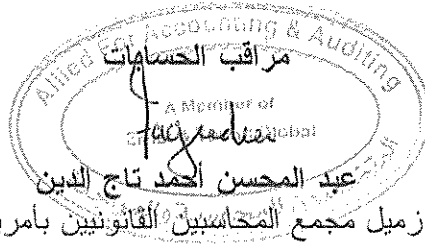 Allied For Accounting & Auditing
مراقب الحسابات
A Member of
عبد المحسن أحمد تاج الدين
زميل مجمع المحاسبين القانونيين بأمر